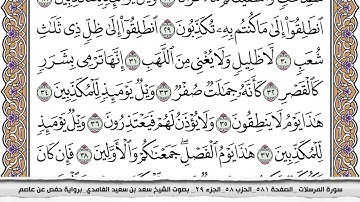 ٱنطَلِقُوٓا۟ إِلَىٰ مَا كُنتُم بِهِۦ تُكَذِّبُونَ ٢٩ ٱنطَلِقُوٓا۟ إِلَىٰ ظِلٍّ ذِى ثَلَٰثِ
شُعَبٍ ٣٠ لَّا ظَلِيلٍ وَلَا يُغْنِى مِنَ ٱللَّهَبِ ٣١ إِنَّهَا تَرْمِى بِشَرَرٍ
كَٱلْقَصْرِ ٣٢ كَأَنَّهُۥ جِمَٰلَتٌ صُفْرٌ ٣٣ وَيْلٌ يَوْمَئِذٍ لِّلْمُكَذِّبِينَ ٣٤
هَٰذَا يَوْمُ لَا يَنطِقُونَ ٣٥ وَلَا يُؤْذَنُ لَهُمْ فَيَعْتَذِرُونَ ٣٦ وَيْلٌ يَوْمَئِذٍ
لِّلْمُكَذِّبِينَ ٣٧ هَٰذَا يَوْمُ ٱلْفَصْلِ جَمَعْنَٰكُمْ وَٱلْأَوَّلِينَ ٣٨ فَإِن كَانَ
سورة المرسلات _ الصفحة ٥٨١_ الحزب ٥٨_ الجزء ٢٩_ بصوت الشيخ سعد بن سعيد الغامدي _برواية حفص عن عاصم